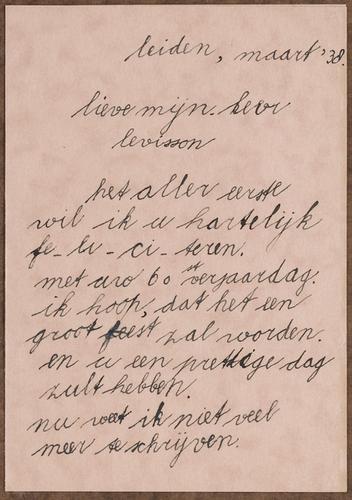 leiden, maart '38.
lieve mijn heer
levisson
het aller eerste
wil ik u hartelijk
fe-li-ci-teren.
met uw 60ste verjaardag.
ik hoop, dat het een
groot feest zal worden.
en u een prettige dag
zult hebben.
nu weet ik niet veel
meer te schrijven.